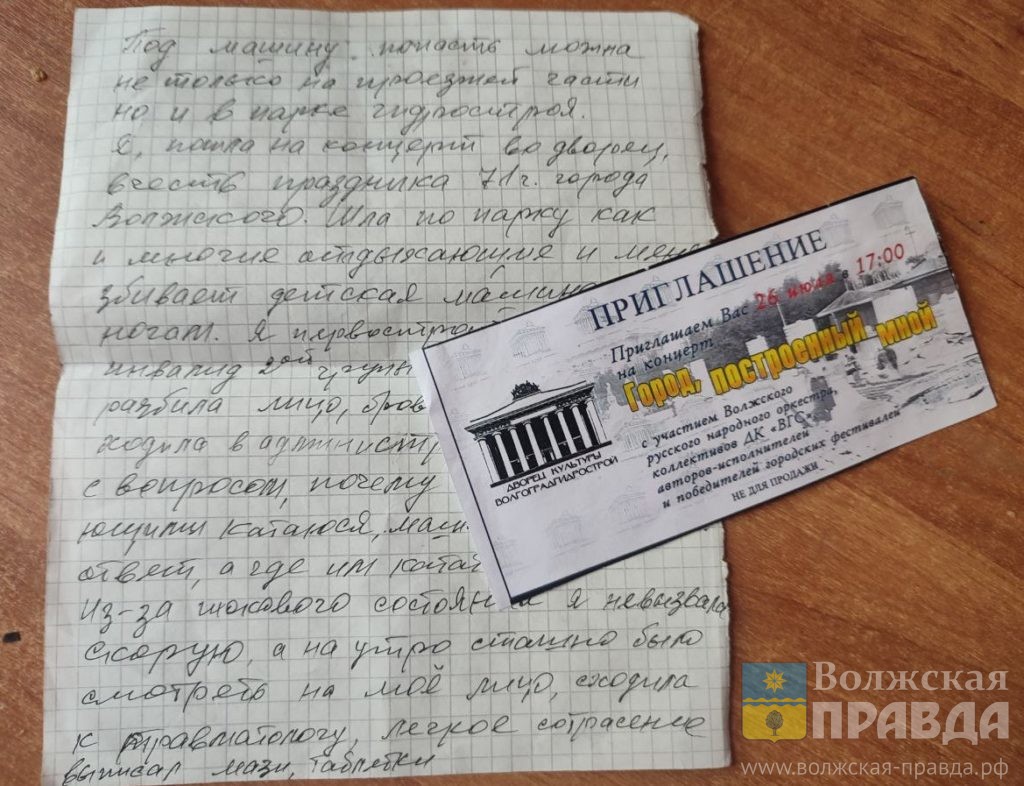 Под машину попасть можна
не только на проезжей части
но и в парке гидростроя.
Я, пошла на концерт во дворец,
вчесть праздника 71г. города
Волжского. Шла по парку как
и многие отдыхающие и меня
збивает детская машина
ногам. Я первострой
инвалид 2ой групп
разбила лицо, бров
ходила в администр
с вопросом, почему
ющими катаюся, маш
ответ, а где им катат
Из-за шокового состояния я невызвала
скорую, а на утро сташно было
смотреть на моё лицо, сходила
к травматологу, легкое сотрасение
выписал мази, таблетки
ПРИГЛАШЕНИЕ
Приглашаем Вас 26 июля в 17:00
на концерт
Город, построенный мной
с участием Волжского
русского народного оркестра,
коллективов ДК «ВГС»,
авторов-исполнителей
и победителей городских фестивалей
НЕ ДЛЯ ПРОДАЖИ
ДВОРЕЦ КУЛЬТУРЫ
ВОЛГОГРАДГИДРОСТРОЙ
Волжская
ПРАВДА
www.волжская-правда.рф